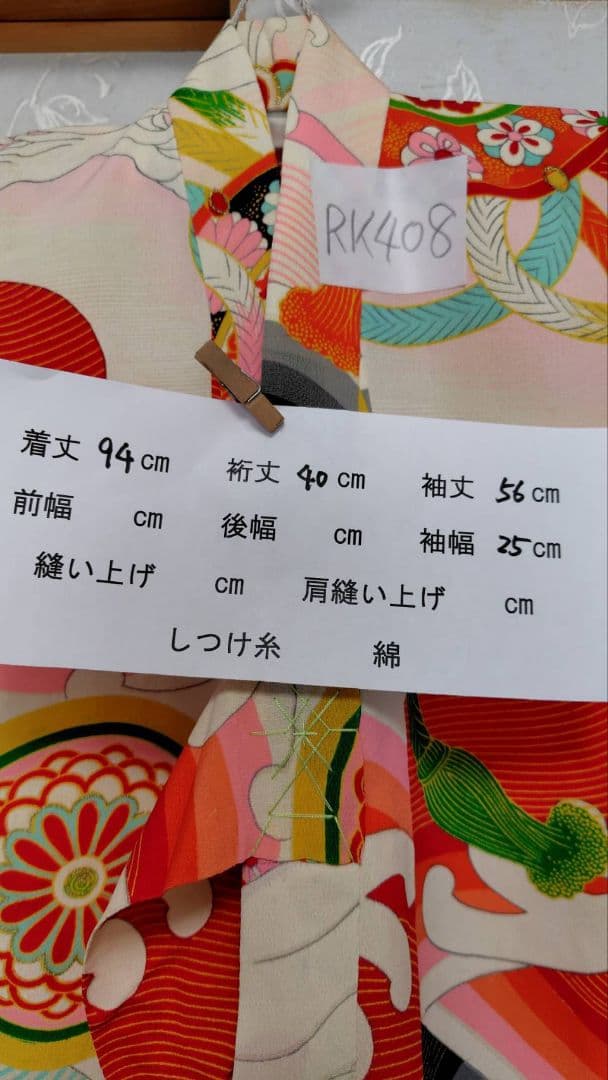 RK408
着丈 94cm 裄丈 40cm 袖丈 56cm
前幅 cm 後幅 cm 袖幅 25cm
縫い上げ cm 肩縫い上げ cm
しつけ糸 綿